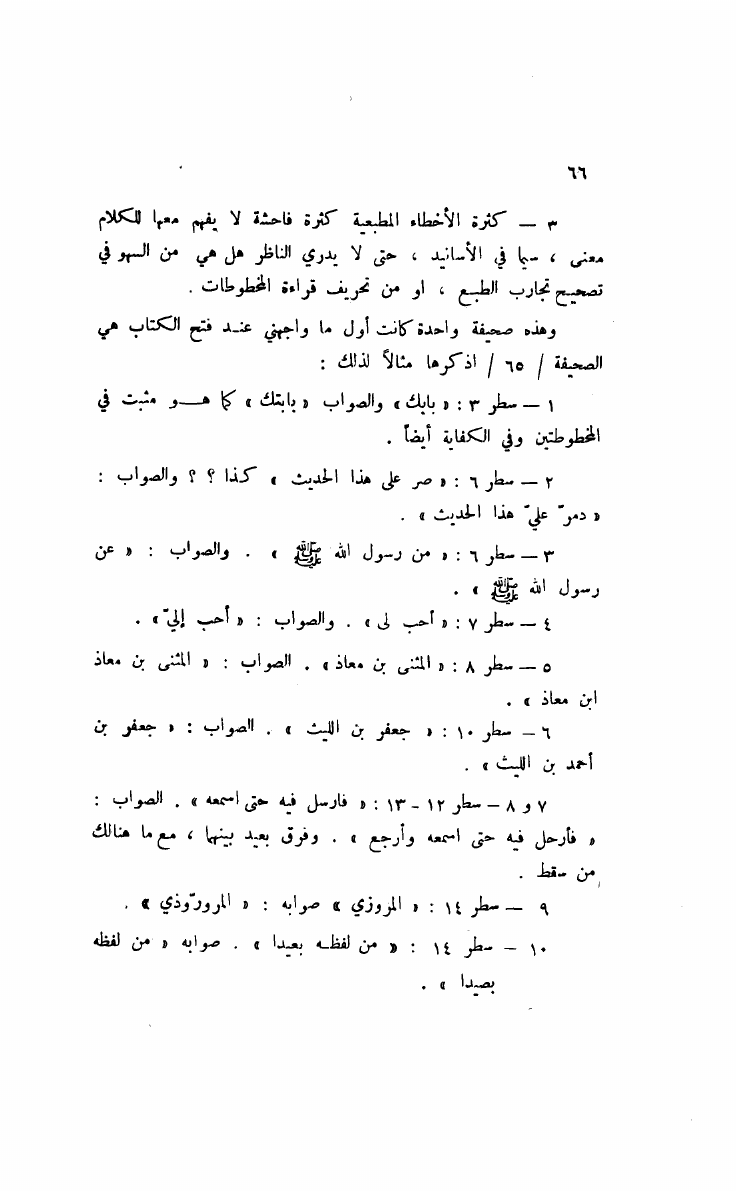 ٦٦
٣ — كثرة الأخطاء المطبعية كثرة فاحشة لا يفهم معها للكلام
معنى ، سيما في الأسانيد ، حتى لا يدري الناظر هل هي من السهو في
تصحيح تجارب الطبع ، او من تحريف قراءة المخطوطات .
وهذه صحيفة واحدة كانت أول ما واجهني عند فتح الكتاب هي
الصحيفة / ٦٥ / اذكرها مثالاً لذلك :
١ — سطر ٣ : « بابك » والصواب « بابتك » كما هو مثبت في
المخطوطتين وفي الكفاية أيضاً .
٢ — سطر ٦ : « صر على هذا الحديث » كذا ؟ ؟ والصواب :
« دمرّ عليّ هذا الحديث » .
٣ — سطر ٦ : « من رسول الله ﷺ » . والصواب : « عن
رسول الله ﷺ » .
٤ — سطر ٧ : « أحب لى » . والصواب : « أحب إليّ » .
٥ — سطر ٨ : « المثنى بن معاذ » . الصواب : « المثنى بن معاذ
ابن معاذ » .
٦ — سطر ١٠ : « جعفر بن الليث » . الصواب : « جعفر بن
أحمد بن الليث » .
٧ و ٨ — سطر ١٢ - ١٣ : « فارسل فيه حتى اسمعه » . الصواب :
« فأرحل فيه حتى اسمعه وأرجع » . وفرق بعيد بينهما ، مع ما هنالك
من سقط .
٩ — سطر ١٤ : « المروزي » صوابه : « المرورّوذي » .
١٠ — سطر ١٤ : « من لفظه بعيدا » . صوابه « من لفظه
بصيدا » .